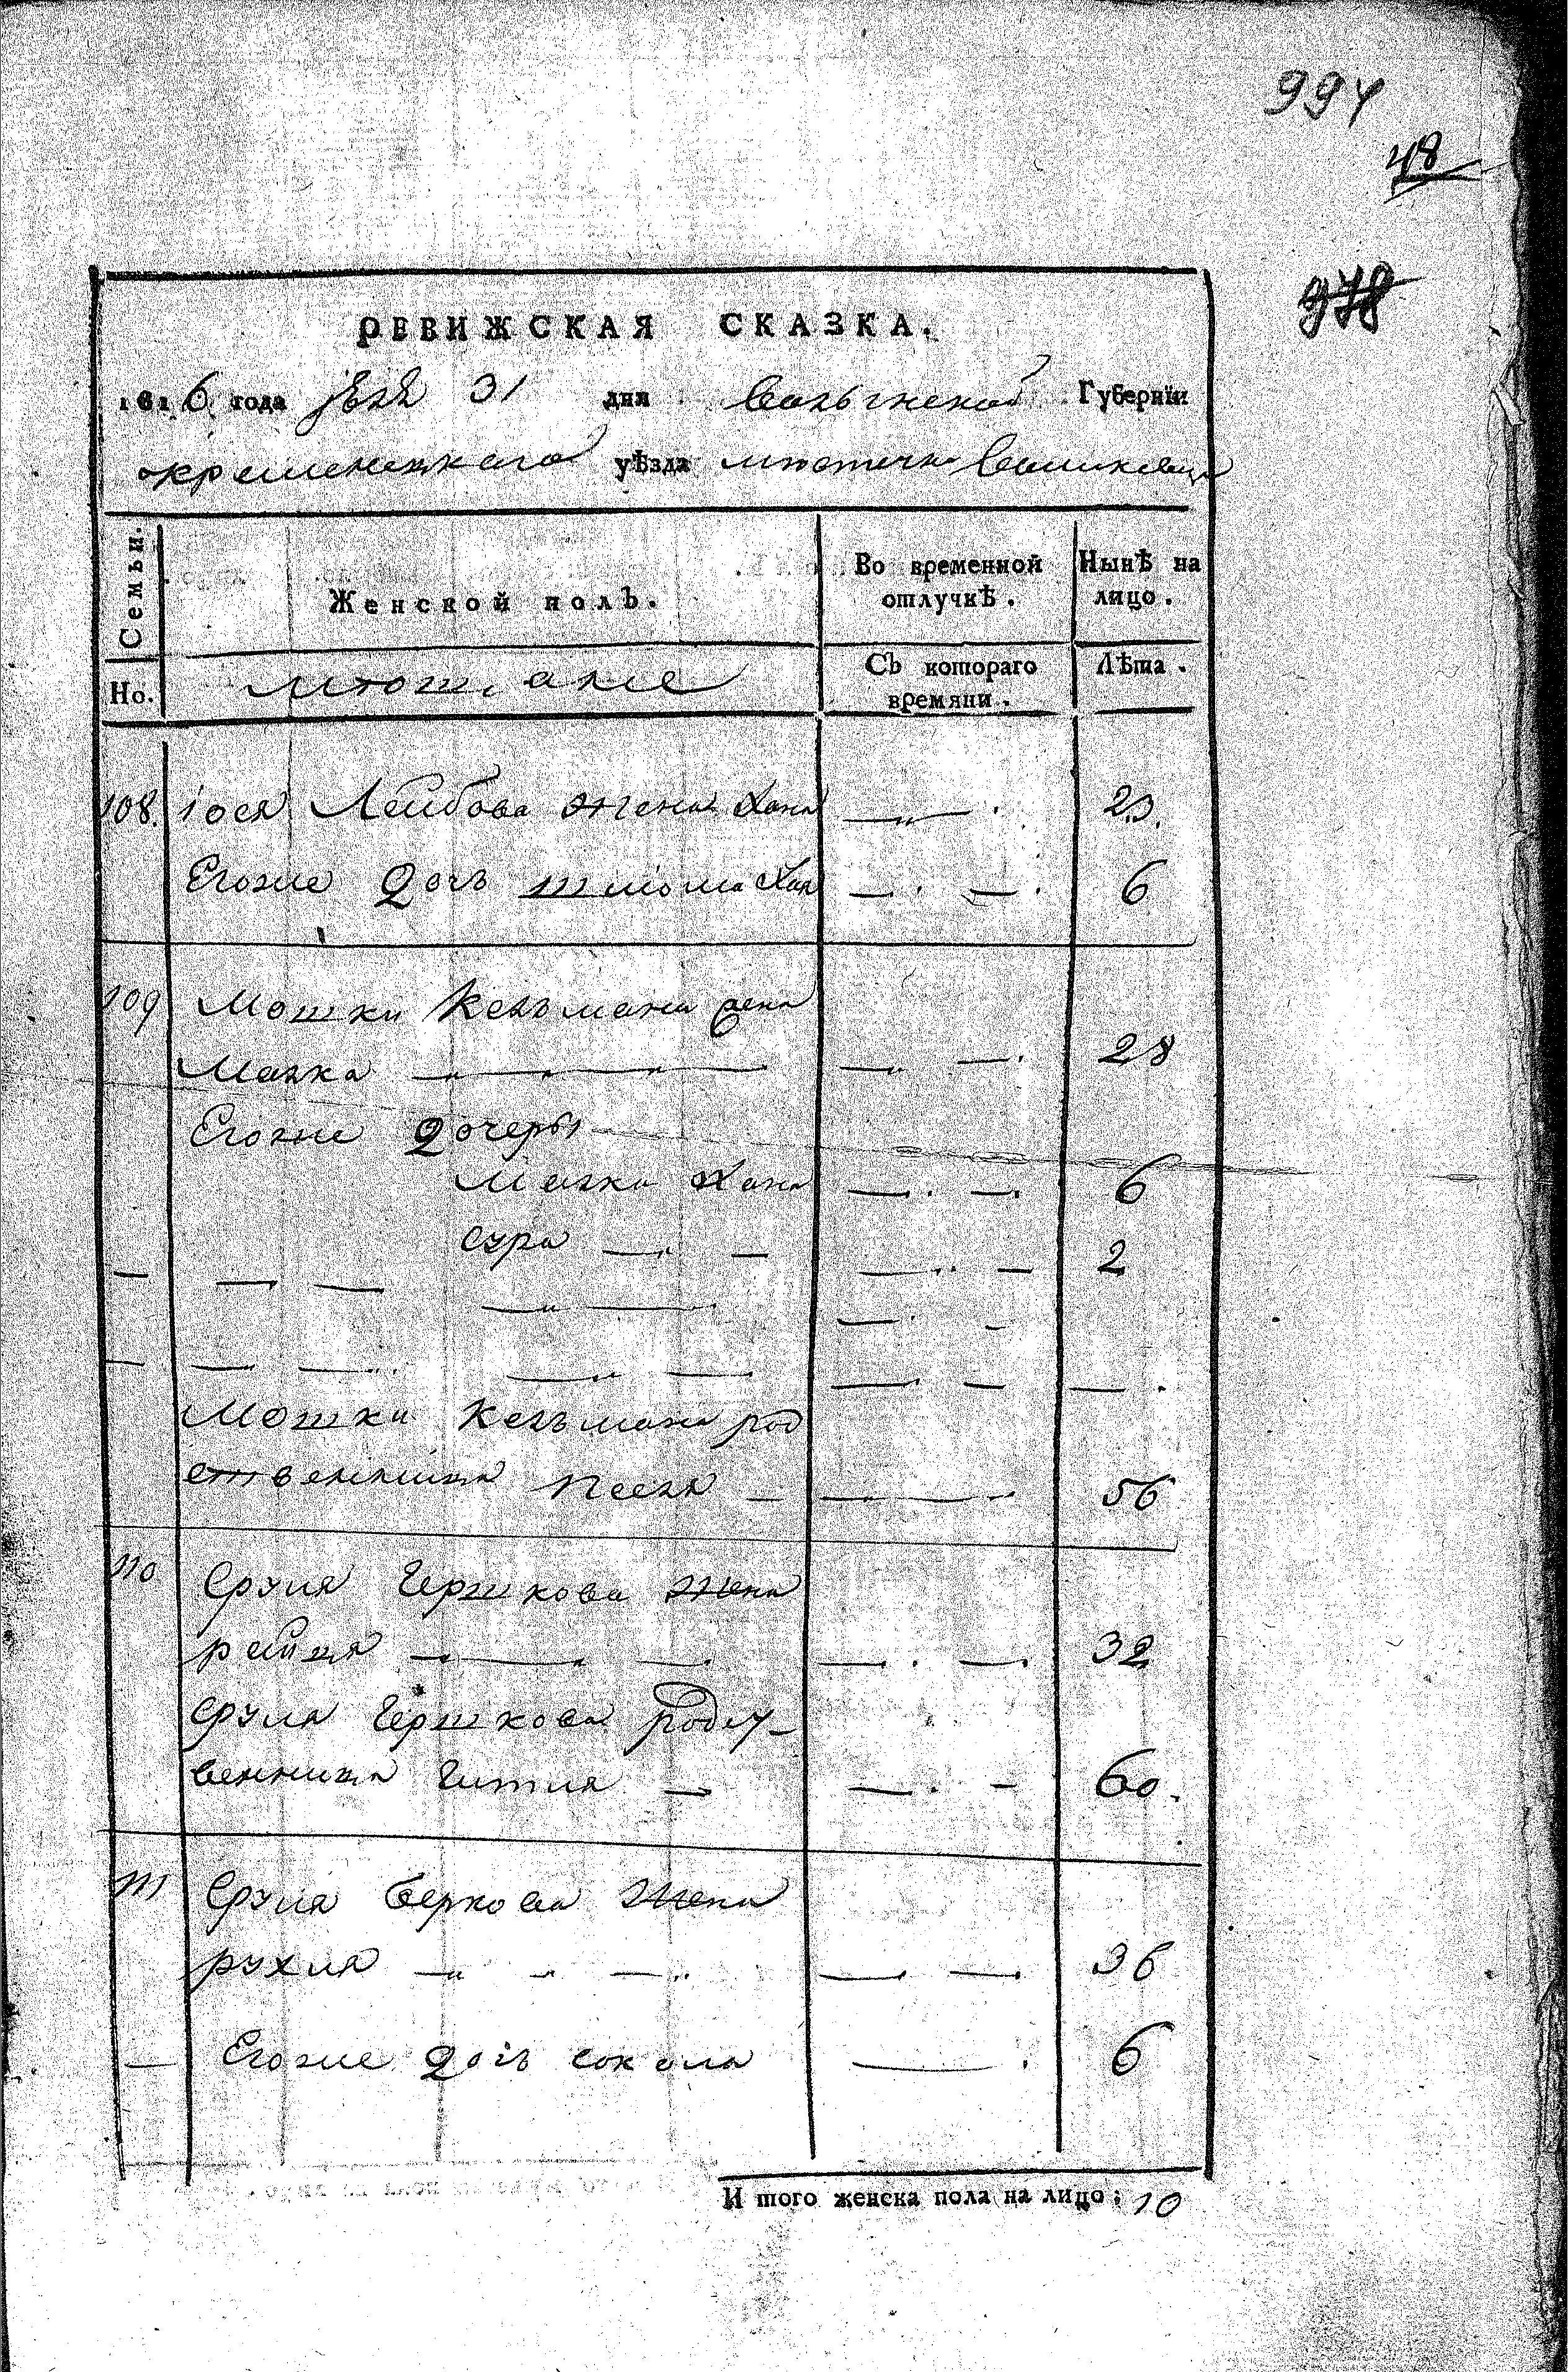 994
48
978
РЕВИЖСКАЯ СКАЗКА.
1816 года 31 дня Волынской Губернїи
кременецкого уѣзда
Семьи.
Женской полъ.
Во временной отлучкѣ.
Нынѣ на лицо.
Но.
Съ котораго времяни.
Лѣта.
108. Іося Лейбова жена Хана —"— 23.
Егоже дочь Хая — . — . 6
109 Мошки Кельмана жена
Малка — " — " — — " — . 28
Егоже дочеры
Малка Хана — . — . 6
Сура — " — — " — 2
Мошки Кельмана род
ственница Песя — — " — 56
110 Сруля Гершкова жена
рейзя — " — " — — . — . 32
Сруля Гершкова родст-
венница Гитля — — . — 60.
111 Сруля Беркова жена
рухля — " — " — " — . — . 36
— Егоже дочь — . 6
И того женска пола на лицо: 10